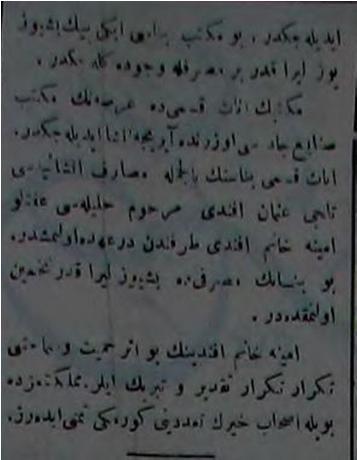 ایدیله جكدر . بو مكتب بناسی ایكی بیك بشیوز
یوز لیرا قدر بر مصرفله وجوده كله جكدر .
مكتبك اناث قسمی ده عرصه نك مكتب
صنایع جاده سی اوزرنده آیریجه انشا ایدیله جكدر .
اناث قسمی بناسنك بالجمله مصارف انشائیه سی
ناجی عثمان افندی مرحوم حلیله سی عفتلو
امینه خانم افندی طرفندن درعهده اولنمشدر .
بو بنانك مصرفی ده بشیوز لیرا قدر تخمین
اولنمقده در .
امینه خانم افندینك بو اثر حمیت و سماحتنی
تكرار تكرار تقدیر و تبریك ایلر . مملكتمزده
بویله اصحاب خیرك تعددینی كورمكی تمنی ایده رز .